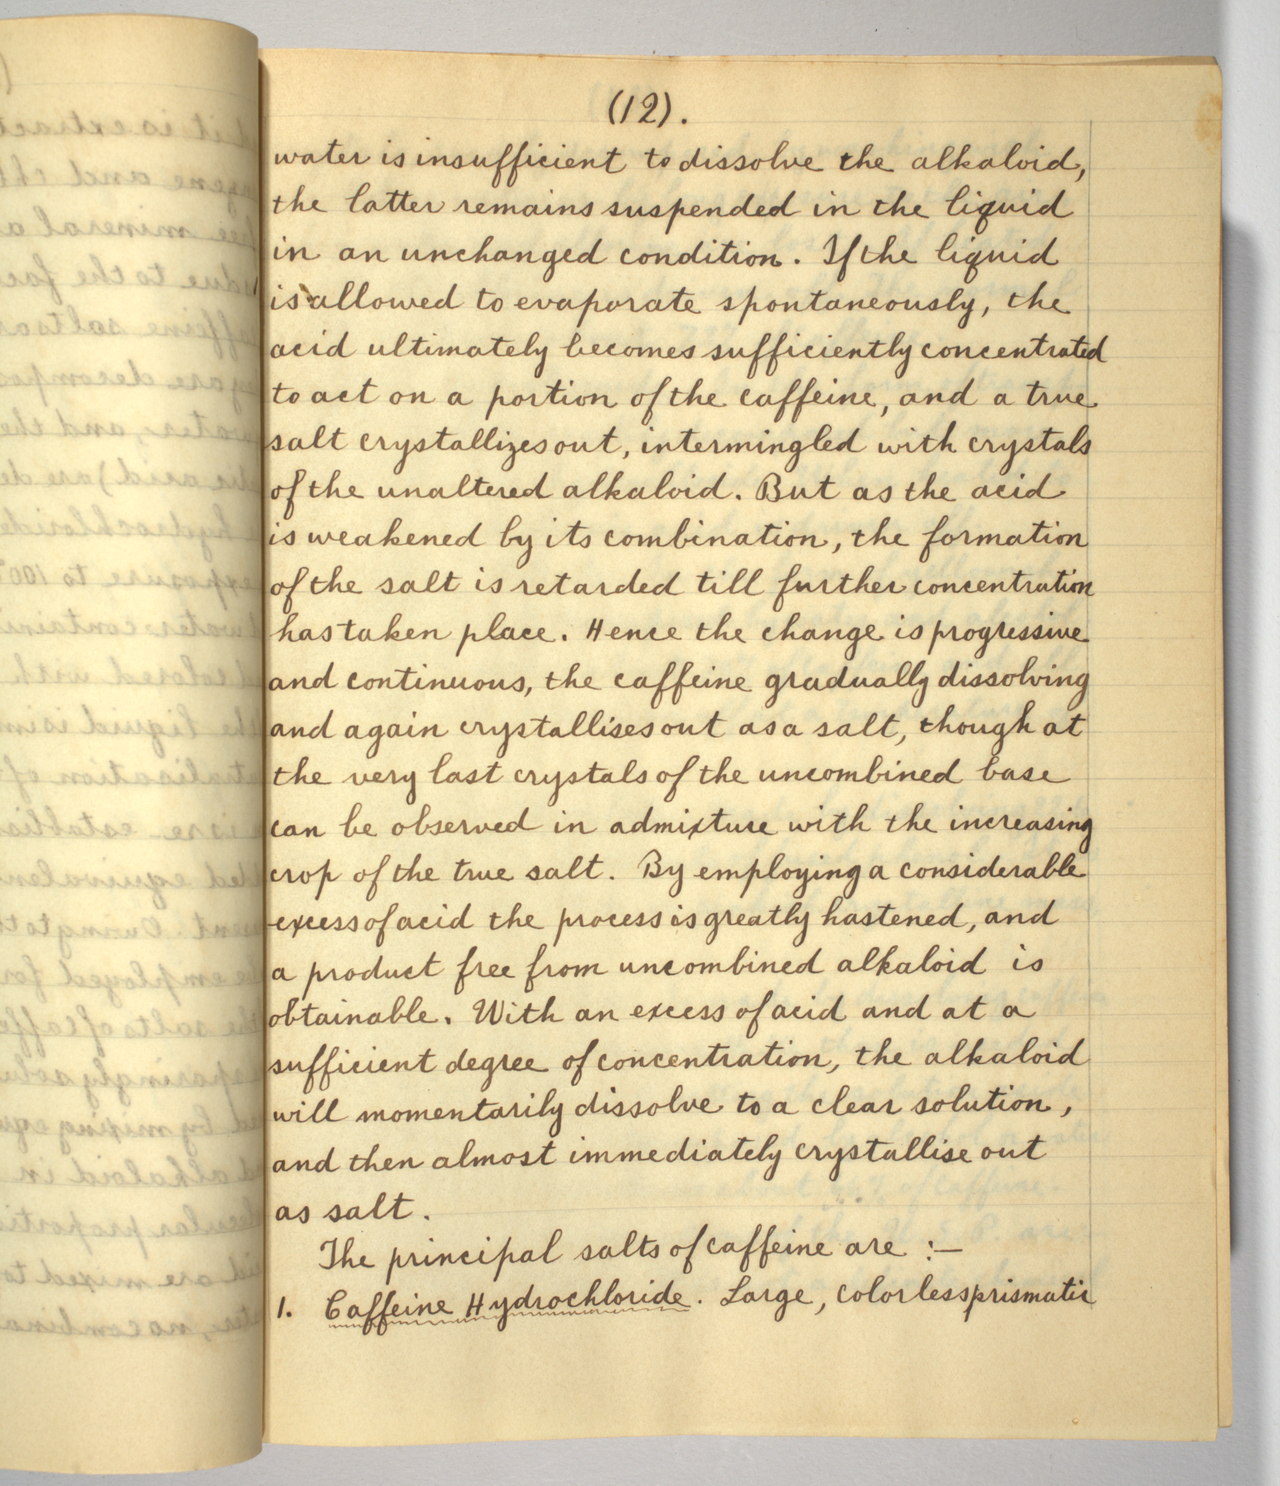 (12).
water is insufficient to dissolve the alkaloid,
the latter remains suspended in the liquid
in an unchanged condition. If the liquid
is allowed to evaporate spontaneously, the
acid ultimately becomes sufficiently concentrated
to act on a portion of the caffeine, and a true
salt crystallizes out, intermingled with crystals
of the unaltered alkaloid. But as the acid
is weakened by its combination, the formation
of the salt is retarded till further concentration
has taken place. Hence the change is progressive
and continuous, the caffeine gradually dissolving
and again crystallises out as a salt, though at
the very last crystals of the uncombined base
can be observed in admixture with the increasing
crop of the true salt. By employing a considerable
excess of acid the process is greatly hastened, and
a product free from uncombined alkaloid is
obtainable. With an excess of acid and at a
sufficient degree of concentration, the alkaloid
will momentarily dissolve to a clear solution,
and then almost immediately crystallise out
as salt.
The principal salts of caffeine are :—
1. Caffeine Hydrochloride. Large, colorless prismatic